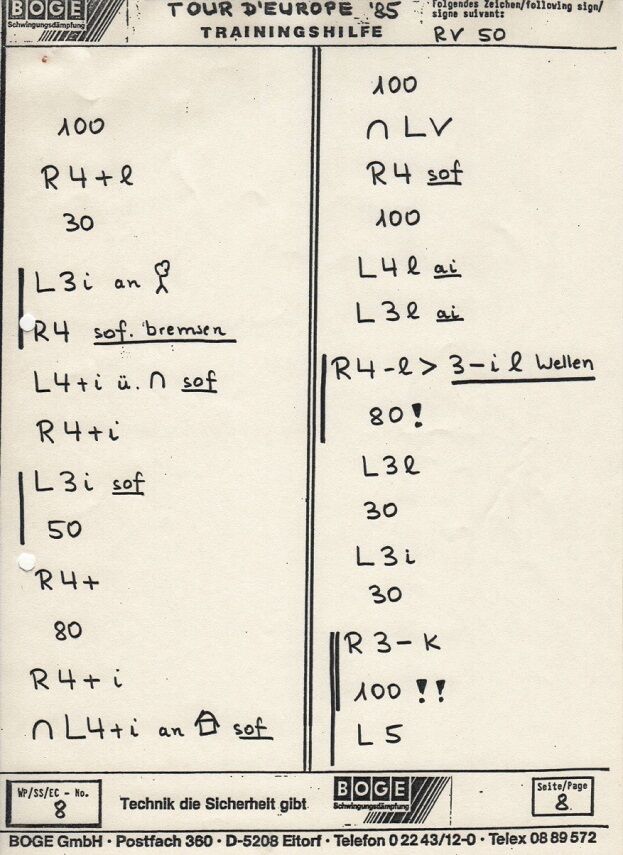 BOGE
Schwingungsdämpfung
TOUR D'EUROPE '85
TRAININGSHILFE
folgendes Zeichen/following sign/
signe suivant:
RV 50
100
R4+l
30
L3i an
R4 sof. bremsen
L4+i ü. ∩ sof
R4+i
L3i sof
50
R4+
80
R4+i
∩ L4+i an sof
100
∩ LV
R4 sof
100
L4l ai
L3l ai
R4-l > 3-il Wellen
80!
L3l
30
L3i
30
R3-K
100 !!
L5
WP/SS/EC - No.
8
Technik die Sicherheit gibt
BOGE
Schwingungsdämpfung
Seite/Page
8
BOGE GmbH · Postfach 360 · D-5208 Eitorf · Telefon 0 22 43/12-0 · Telex 08 89 572